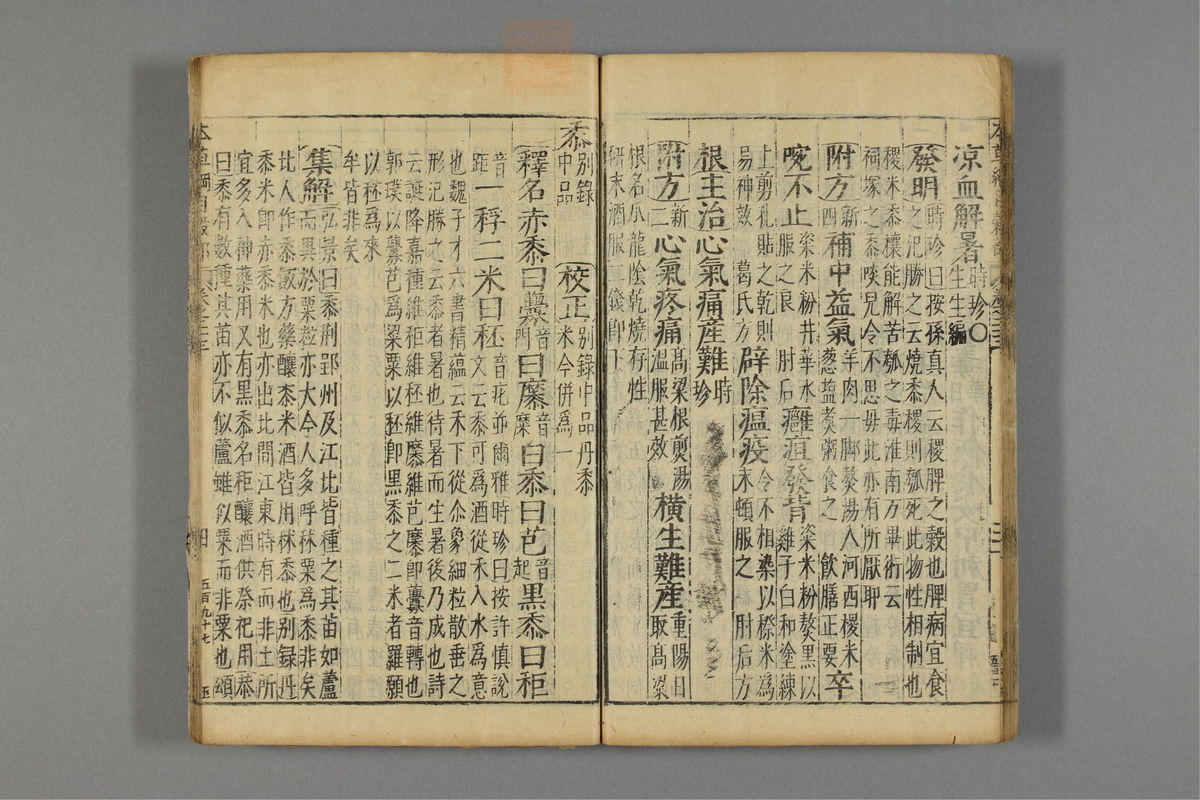 凉血解暑時珍○生生編
發明時珍曰按孫真人云稷脾之穀也脾病宜食
之汜勝之云燒黍稷則瓠死此物性相制也
稷米黍穰能解苦瓠之毒淮南万畢術云
祠塚之黍啖兒令不思母此亦有所厭耶
附方新四補中益氣羊肉一脚熬湯入河西稷米葱鹽煑粥食之 飲膳正要 卒
啘不止粢米粉井華水服之良 肘后 癰疽發背粢米粉熬黑以雞子白和塗練
上剪孔貼之乾則易神效 葛氏方 辟除瘟疫令不相染以穄米爲末頓服之 肘后方
根主治心氣痛產難時珍
附方新二心氣疼痛高梁根煎湯温服甚效 橫生難産重陽日取高梁
根名瓜龍陰乾燒存性研末酒服二錢卽下
黍別錄中品 校正別錄中品丹黍米今併爲一
釋名赤黍曰虋音門曰穈音糜曰黍曰芑音起黑黍曰秬
音距一稃二米曰秠音疕並爾雅時珍曰按許慎說文云黍可爲酒從禾入水爲意
也魏子才六書精蘊云禾下從氽象細粒散垂之
形汜勝之云黍者暑也待暑而生暑後乃成也詩
云誕降嘉種維秬維秠維穈維芑穈卽虋音轉也
郭璞以虋芑爲粱粟以秠卽黑黍之二米者羅願
以秠爲來牟皆非矣
集解弘景曰黍荆郢州及江北皆種之其苗如蘆
而異於粟粒亦大今人多呼秫粟爲黍非矣
北人作黍飯方藥釀黍米酒皆用秫黍也别録丹
黍米卽赤黍米也亦出北間江東時有而非土所
宜多入神藥用又有黑黍名秬釀酒供祭祀用恭
曰黍有數種其苗亦不似蘆雖似粟而非粟也頌
四
五百九十七